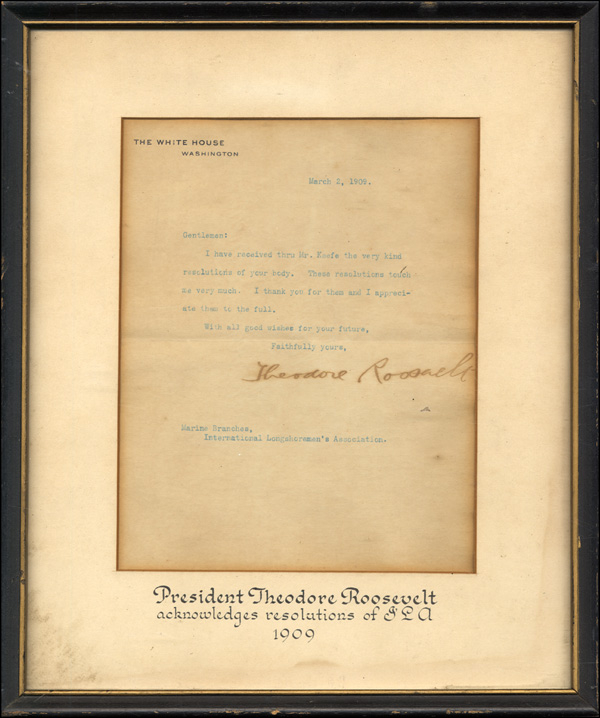 THE WHITE HOUSE
WASHINGTON
March 2, 1909.
Gentlemen:
I have received thru Mr. Keefe the very kind
resolutions of your body. These resolutions touch
me very much. I thank you for them and I appreci-
ate them to the full.
With all good wishes for your future,
Faithfully yours,
Theodore Roosevelt
Marine Branches,
International Longshoremen's Association.
President Theodore Roosevelt
acknowledges resolutions of ILA
1909